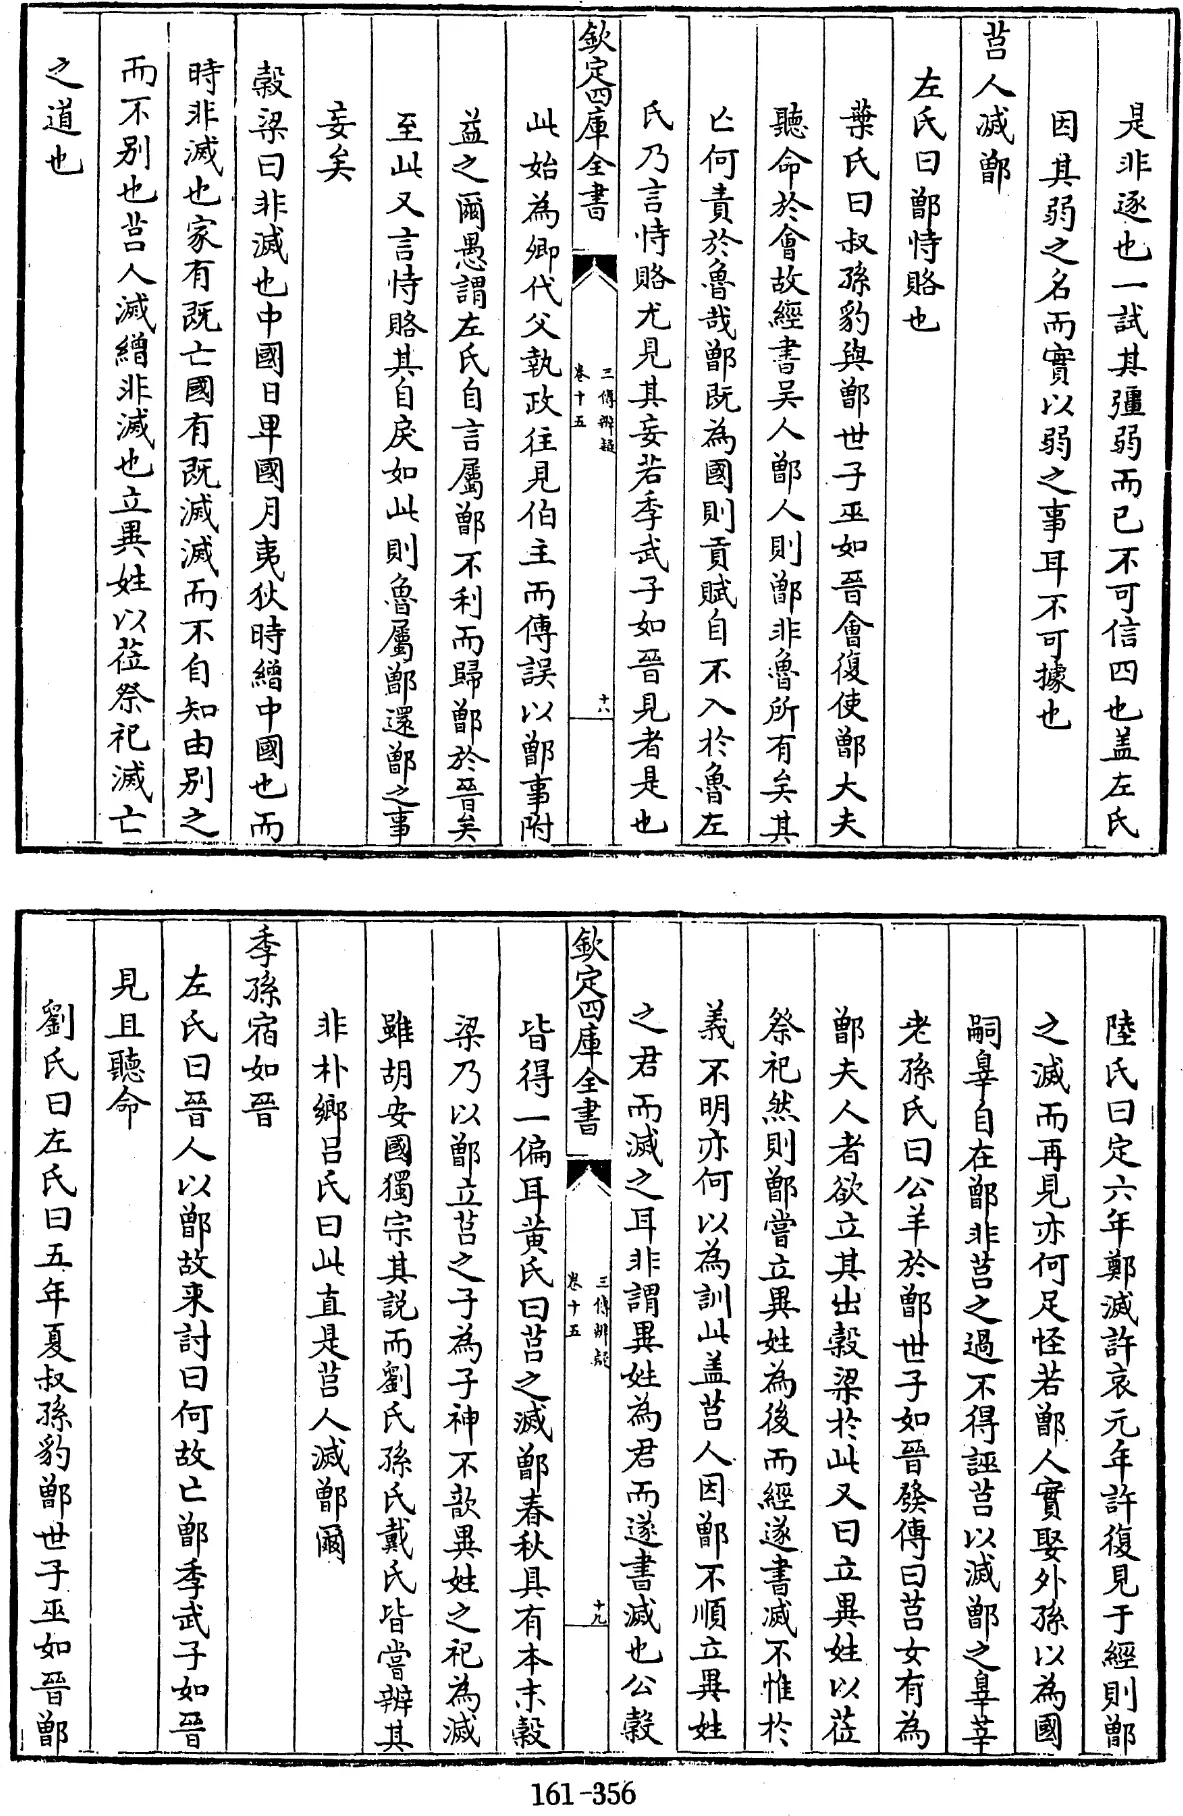 是非逐也一試其彊弱而已不可信四也盖左氏
因其弱之名而實以弱之事耳不可據也
莒人滅鄫
左氏曰鄫恃賂也
葉氏曰叔孫豹與鄫世子巫如晉會復使鄫大夫
聽命於會故經書吴人鄫人則鄫非魯所有矣其
亡何責於魯哉鄫既為國則貢賦自不入於魯左
氏乃言恃賂尤見其妄若季武子如晉見者是也
欽定四庫全書
三傳辨疑
卷十五
十八
此始為卿代父執政往見伯主而傳誤以鄫事附
益之爾愚謂左氏自言屬鄫不利而歸鄫於晉矣
至此又言恃賂其自戾如此則魯屬鄫還鄫之事
妄矣
穀梁曰非滅也中國日卑國月夷狄時繒中國也而
時非滅也家有既亡國有既滅滅而不自知由别之
而不别也莒人滅繒非滅也立異姓以莅祭祀滅亡
之道也
陸氏曰定六年鄭滅許哀元年許復見于經則鄫
之滅而再見亦何足怪若鄫人實娶外孫以為國
嗣辠自在鄫非莒之過不得誣莒以滅鄫之辠莘
老孫氏曰公羊於鄫世子如晉發傳曰莒女有為
鄫夫人者欲立其出穀梁於此又曰立異姓以莅
祭祀然則鄫嘗立異姓為後而經遂書滅不惟於
義不明亦何以為訓此盖莒人因鄫不順立異姓
之君而滅之耳非謂異姓為君而遂書滅也公穀
欽定四庫全書
三傳辨疑
卷十五
十九
皆得一偏耳黄氏曰莒之滅鄫春秋具有本末穀
梁乃以鄫立莒之子為子神不歆異姓之祀為滅
雖胡安國獨宗其説而劉氏孫氏戴氏皆嘗辨其
非朴鄉吕氏曰此直是莒人滅鄫爾
季孫宿如晉
左氏曰晉人以鄫故来討曰何故亡鄫季武子如晉
見且聽命
劉氏曰左氏曰五年夏叔孫豹鄫世子巫如晉鄫
161-356